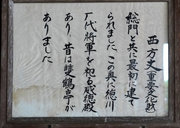 西方丈（重要文化財）
総門と共に最初に建て
られました、この奥に徳川
歴代将軍を祀る殿徳殿
があり、昔は雙鶴亭が
ありました